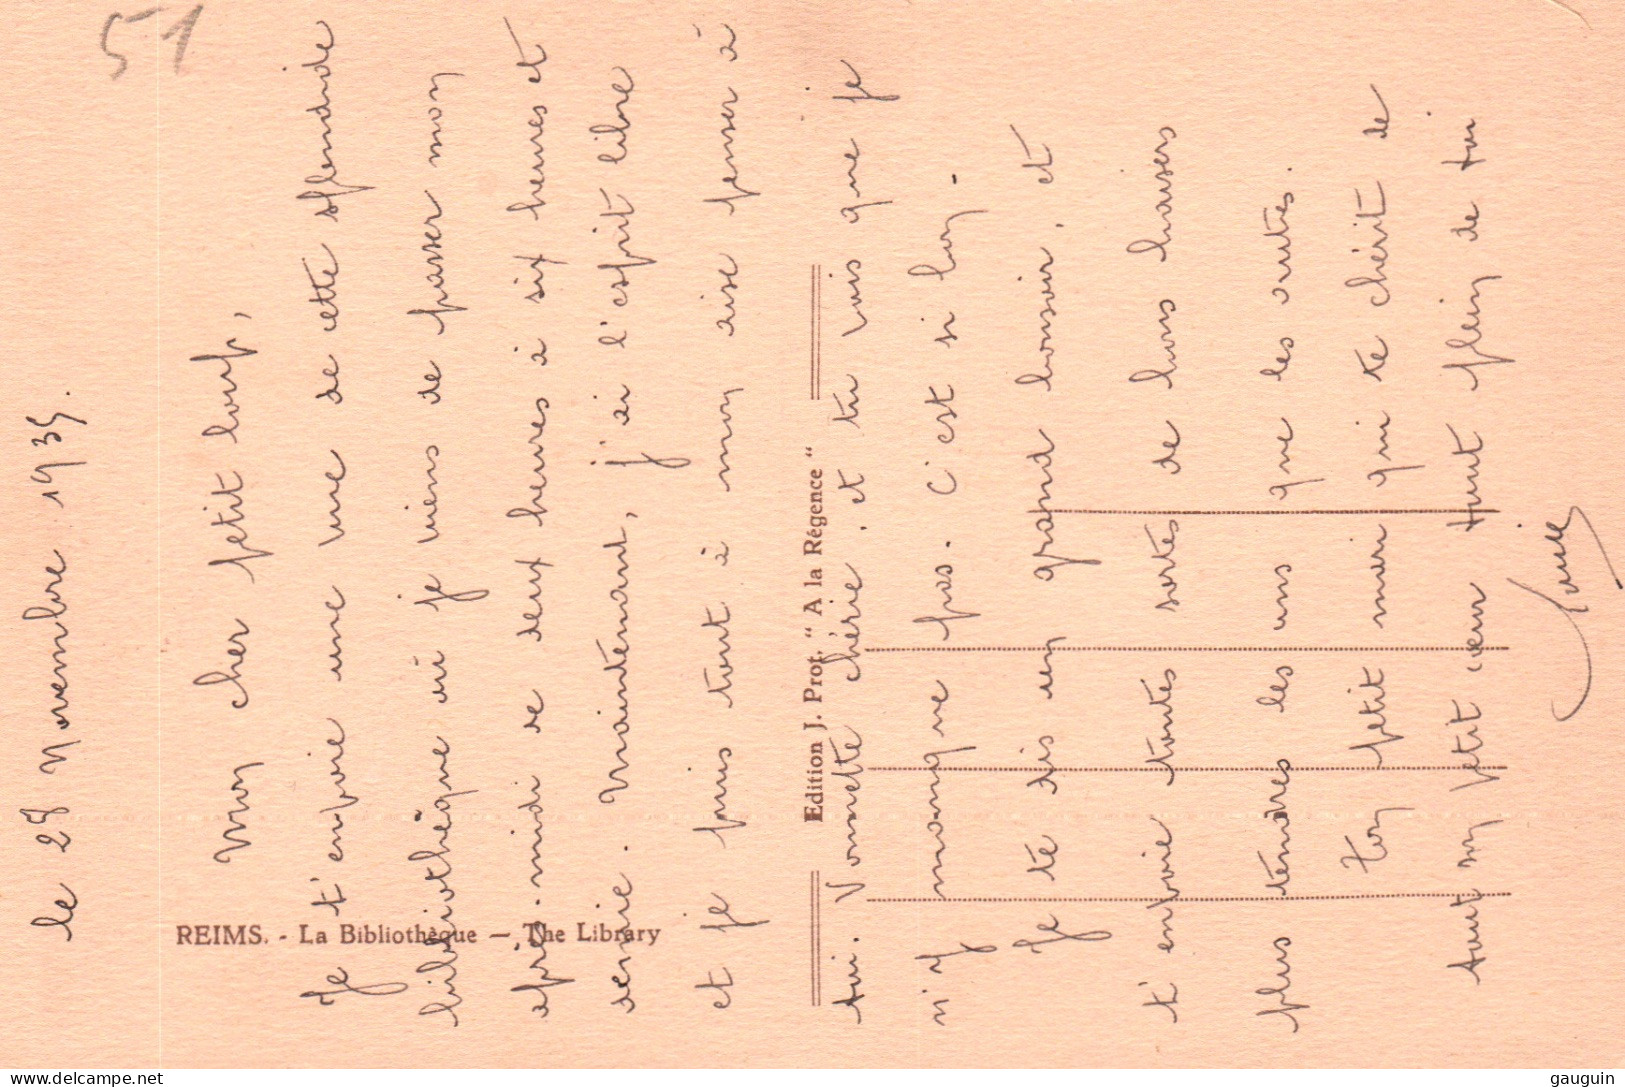 51
le 28 Novembre 1935.
Mon cher petit loup,
Je t'envoie une vue de cette splendide
bibliothèque où je viens de passer mon
après-midi de deux heures à six heures et
demie. Maintenant, j'ai l'esprit libre
et je puis tout à mon aise penser à
toi. Vonette chérie, et tu vois que je
n'y manque pas. C'est si bon.
Je te dis un grand bonsoir, et
t'envoie toutes sortes de bons baisers
plus tendres les uns que les autres.
Ton petit mari qui te chérit de
tout son petit cœur tout plein de toi
REIMS. - La Bibliothèque — The Library
Edition J. Prot, "A la Régence"
delcampe.net
gauguin